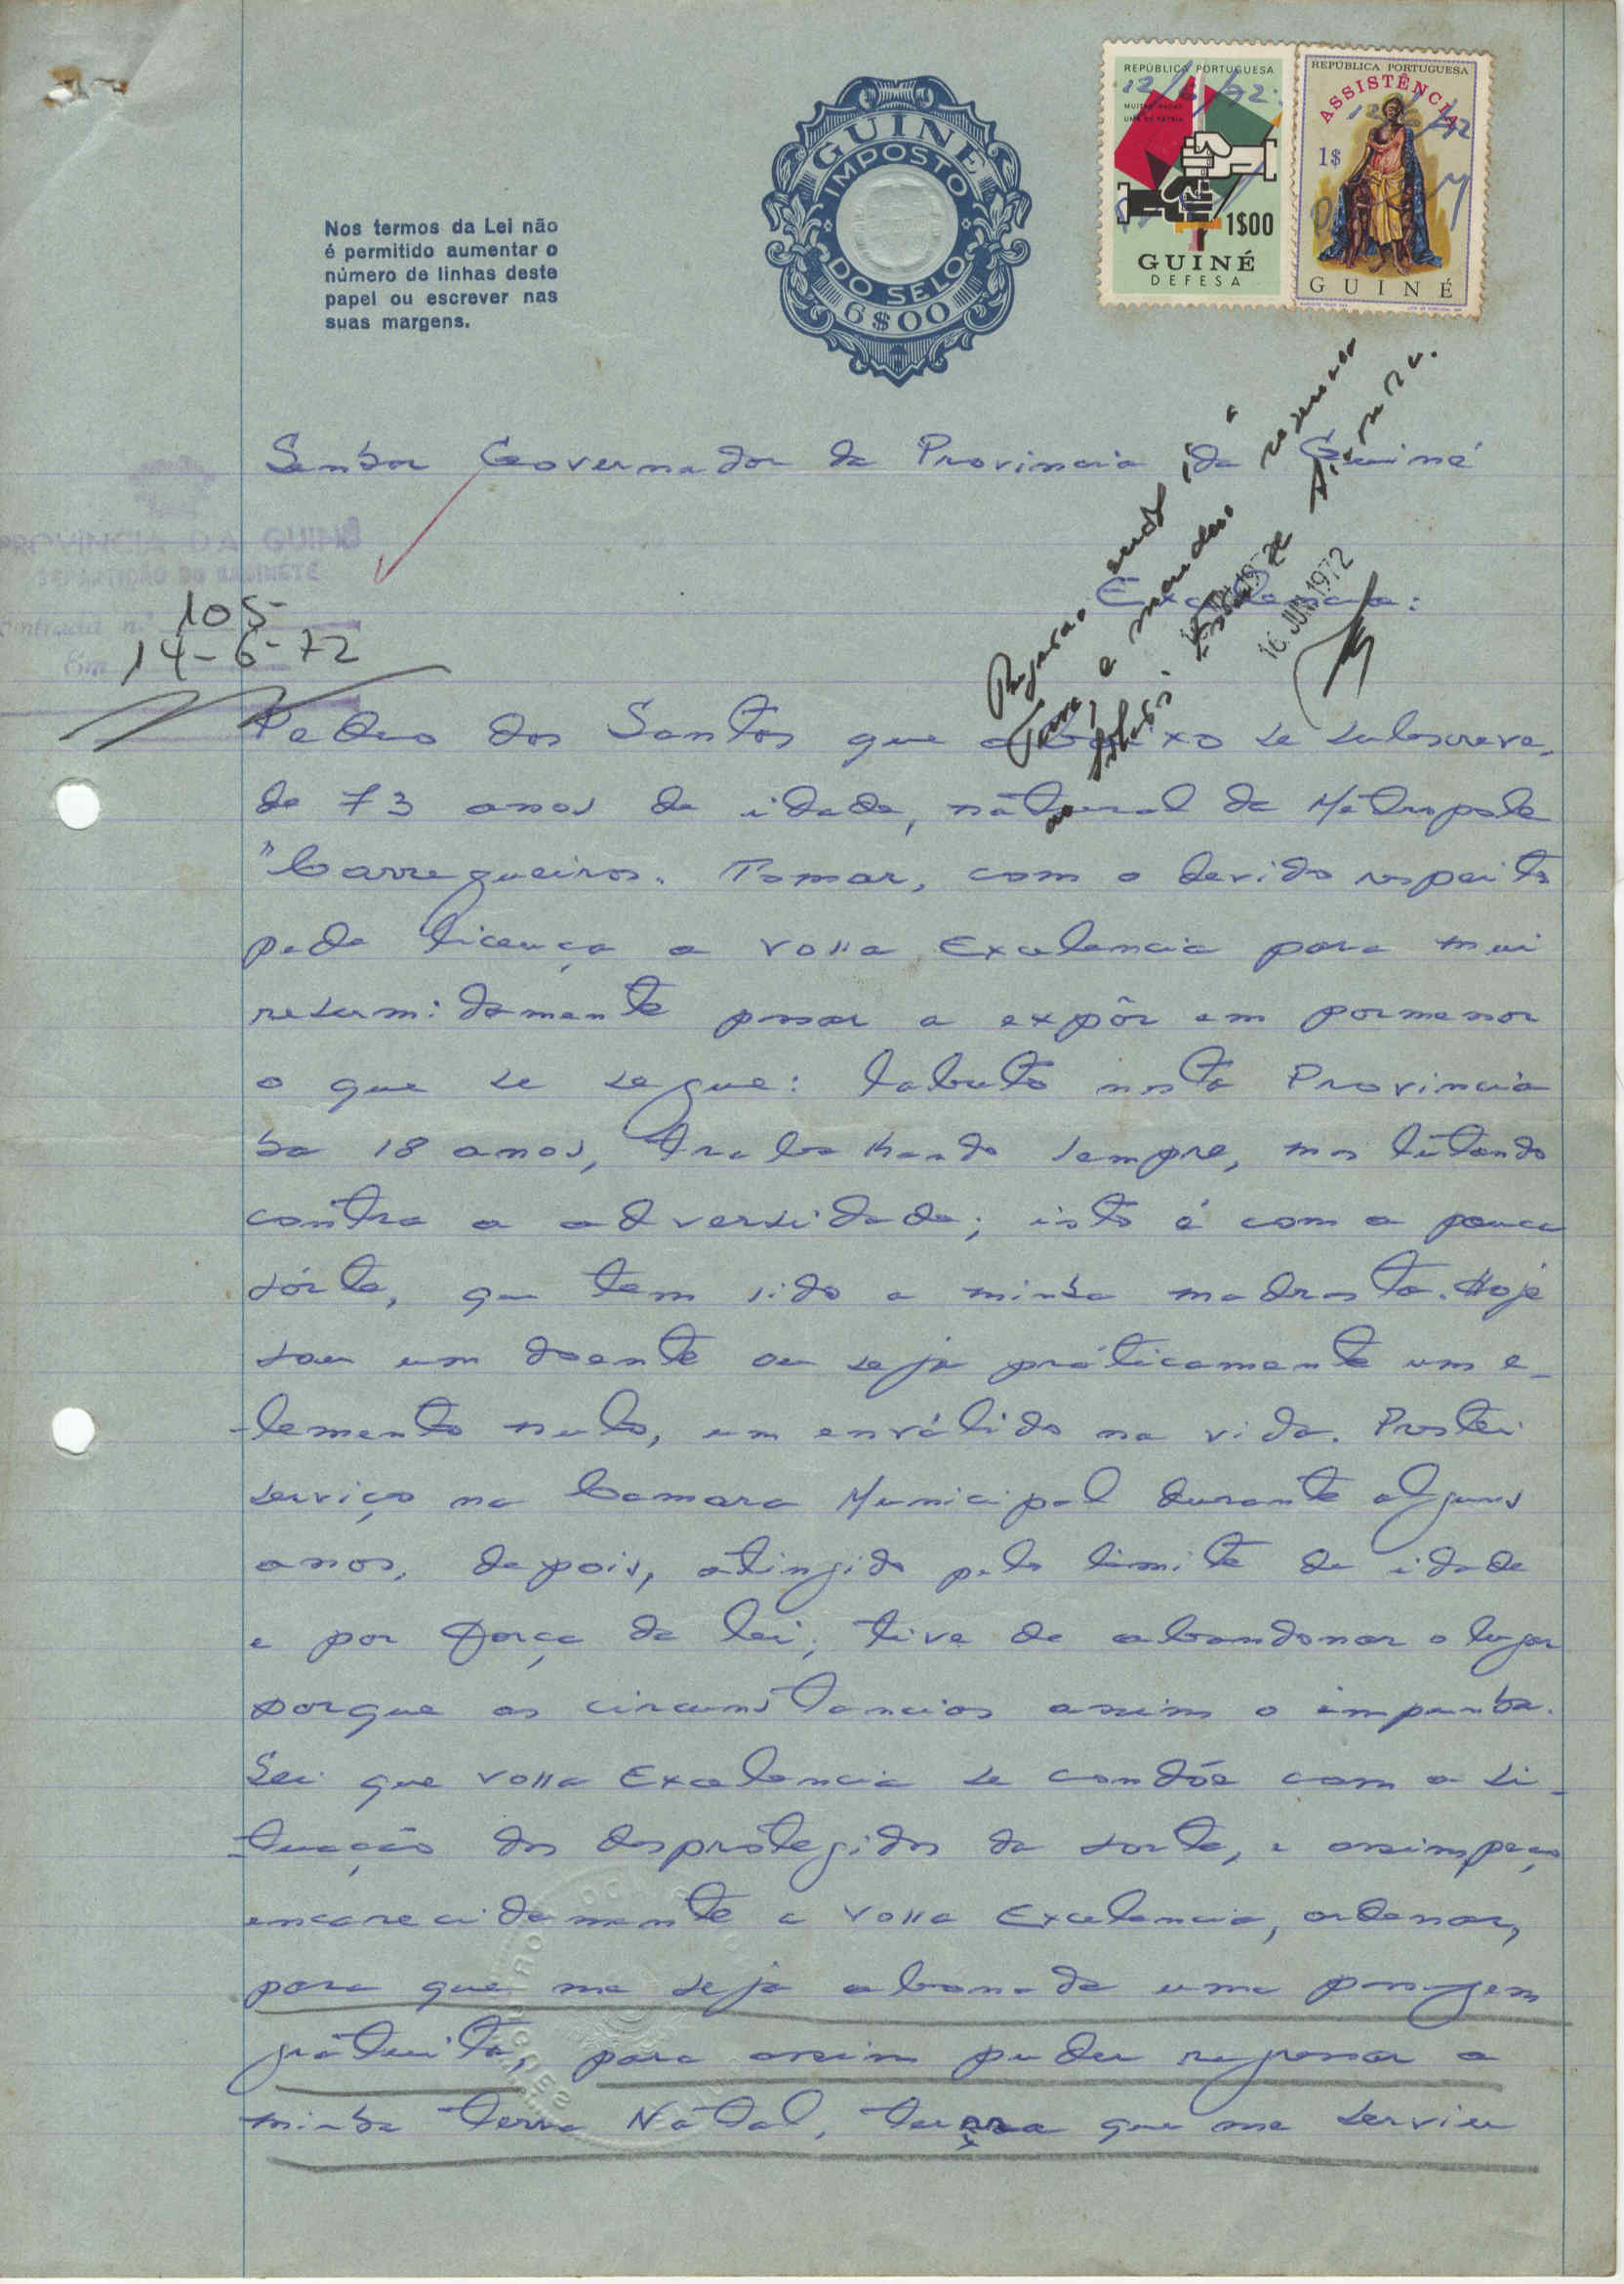 REPÚBLICA PORTUGUESA
12/6/72
MUITAS RAÇAS
UMA SÓ PÁTRIA
1$00
GUINÉ
DEFESA
REPÚBLICA PORTUGUESA
ASSISTÊNCIA
12/6/72
1$
GUINÉ
GUINÉ
IMPOSTO
DO SELO
6$00
Nos termos da Lei não
é permitido aumentar o
número de linhas deste
papel ou escrever nas
suas margens.
Senhor Governador da Provincia da Guiné
PROVINCIA DA GUINÉ
REPARTIÇÃO DO GABINETE
Entrada n.º 105
Em 14-6-72
Excelencia:
16 JUN. 1972
16 JUN. 1972
Pedro dos Santos que abaixo se subscreve,
de 73 anos de idade, nátural da Métropole
"Carregueiros. Tomar, com o devido respeito
pede licença a Vossa Excelencia para mui
resumidamente passar a expôr em pormenor
o que se segue: labuto nesta Provincia
ha 18 anos, trabalhando sempre, mas lutando
contra a adversidade; isto é com a pouca
sórte, que tem sido a minha madrasta. Hoje
sou um doente ou seja práticamente um e-
-lemento nulo, um enválido na vida. Prestei
serviço na Camara Municipal durante alguns
anos, depois, atingido pelo limite de idade
e por força da lei, tive de abandonar o lugar
porque as circunstancias assim o impunha.
Sei que Vossa Excelencia se condóe com a si-
-tuação dos desprótegidos da sorte, e assim peço
encarecidamente a Vossa Excelencia, ordenar,
para que me seja abonada uma passagem
grátuita, para assim puder regressar a
minha terra Nátal, terra que me serviu